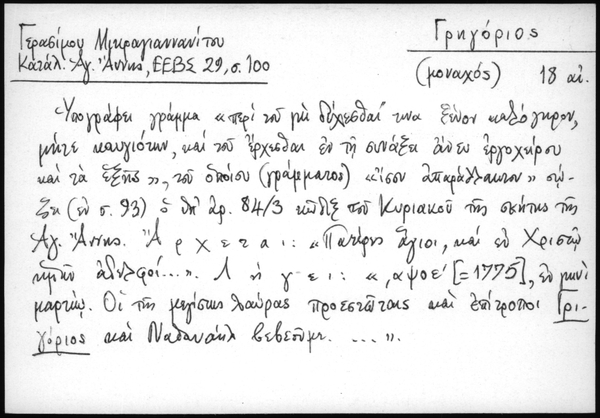 Γερασίμου Μικραγιαννανίτου
Κατάλ. Ἁγ. Ἄννης, ΕΕΒΣ 29, σ. 100
Γρηγόριος
(μοναχός) 18 αἰ.
Ὑπογράφει γράμμα «περὶ τοῦ μὴ δέχεσθαί τινα ξένον καλόγηρον,
μήτε καυγιότην, καὶ τοῦ ἔρχεσθαι ἐν τῇ συνάξει ἄνευ ἐργοχείρου
καὶ τὰ ἑξῆς», τοῦ ὁποίου (γράμματος) «ἴσον ἀπαράλλακτον» σώ-
ζει (ἐν σ. 93) ὁ ὑπ' ἀρ. 84/3 κῶδιξ τοῦ Κυριακοῦ τῆς σκήτης τῆς
Ἁγ. Ἄννης. Ἄρχεται: «Πατέρες ἅγιοι, καὶ ἐν Χριστῷ
ἡμῶν ἀδελφοί...». Λήγει: «͵αψοε´ [=1775], ἐν μηνὶ
μαρτίῳ. Οἱ τῆς μεγίστης Λαύρας προεστῶτες καὶ ἐπίτροποι Γρι-
γόριος καὶ Ναθαναὴλ βεβεοῦμε. ...».